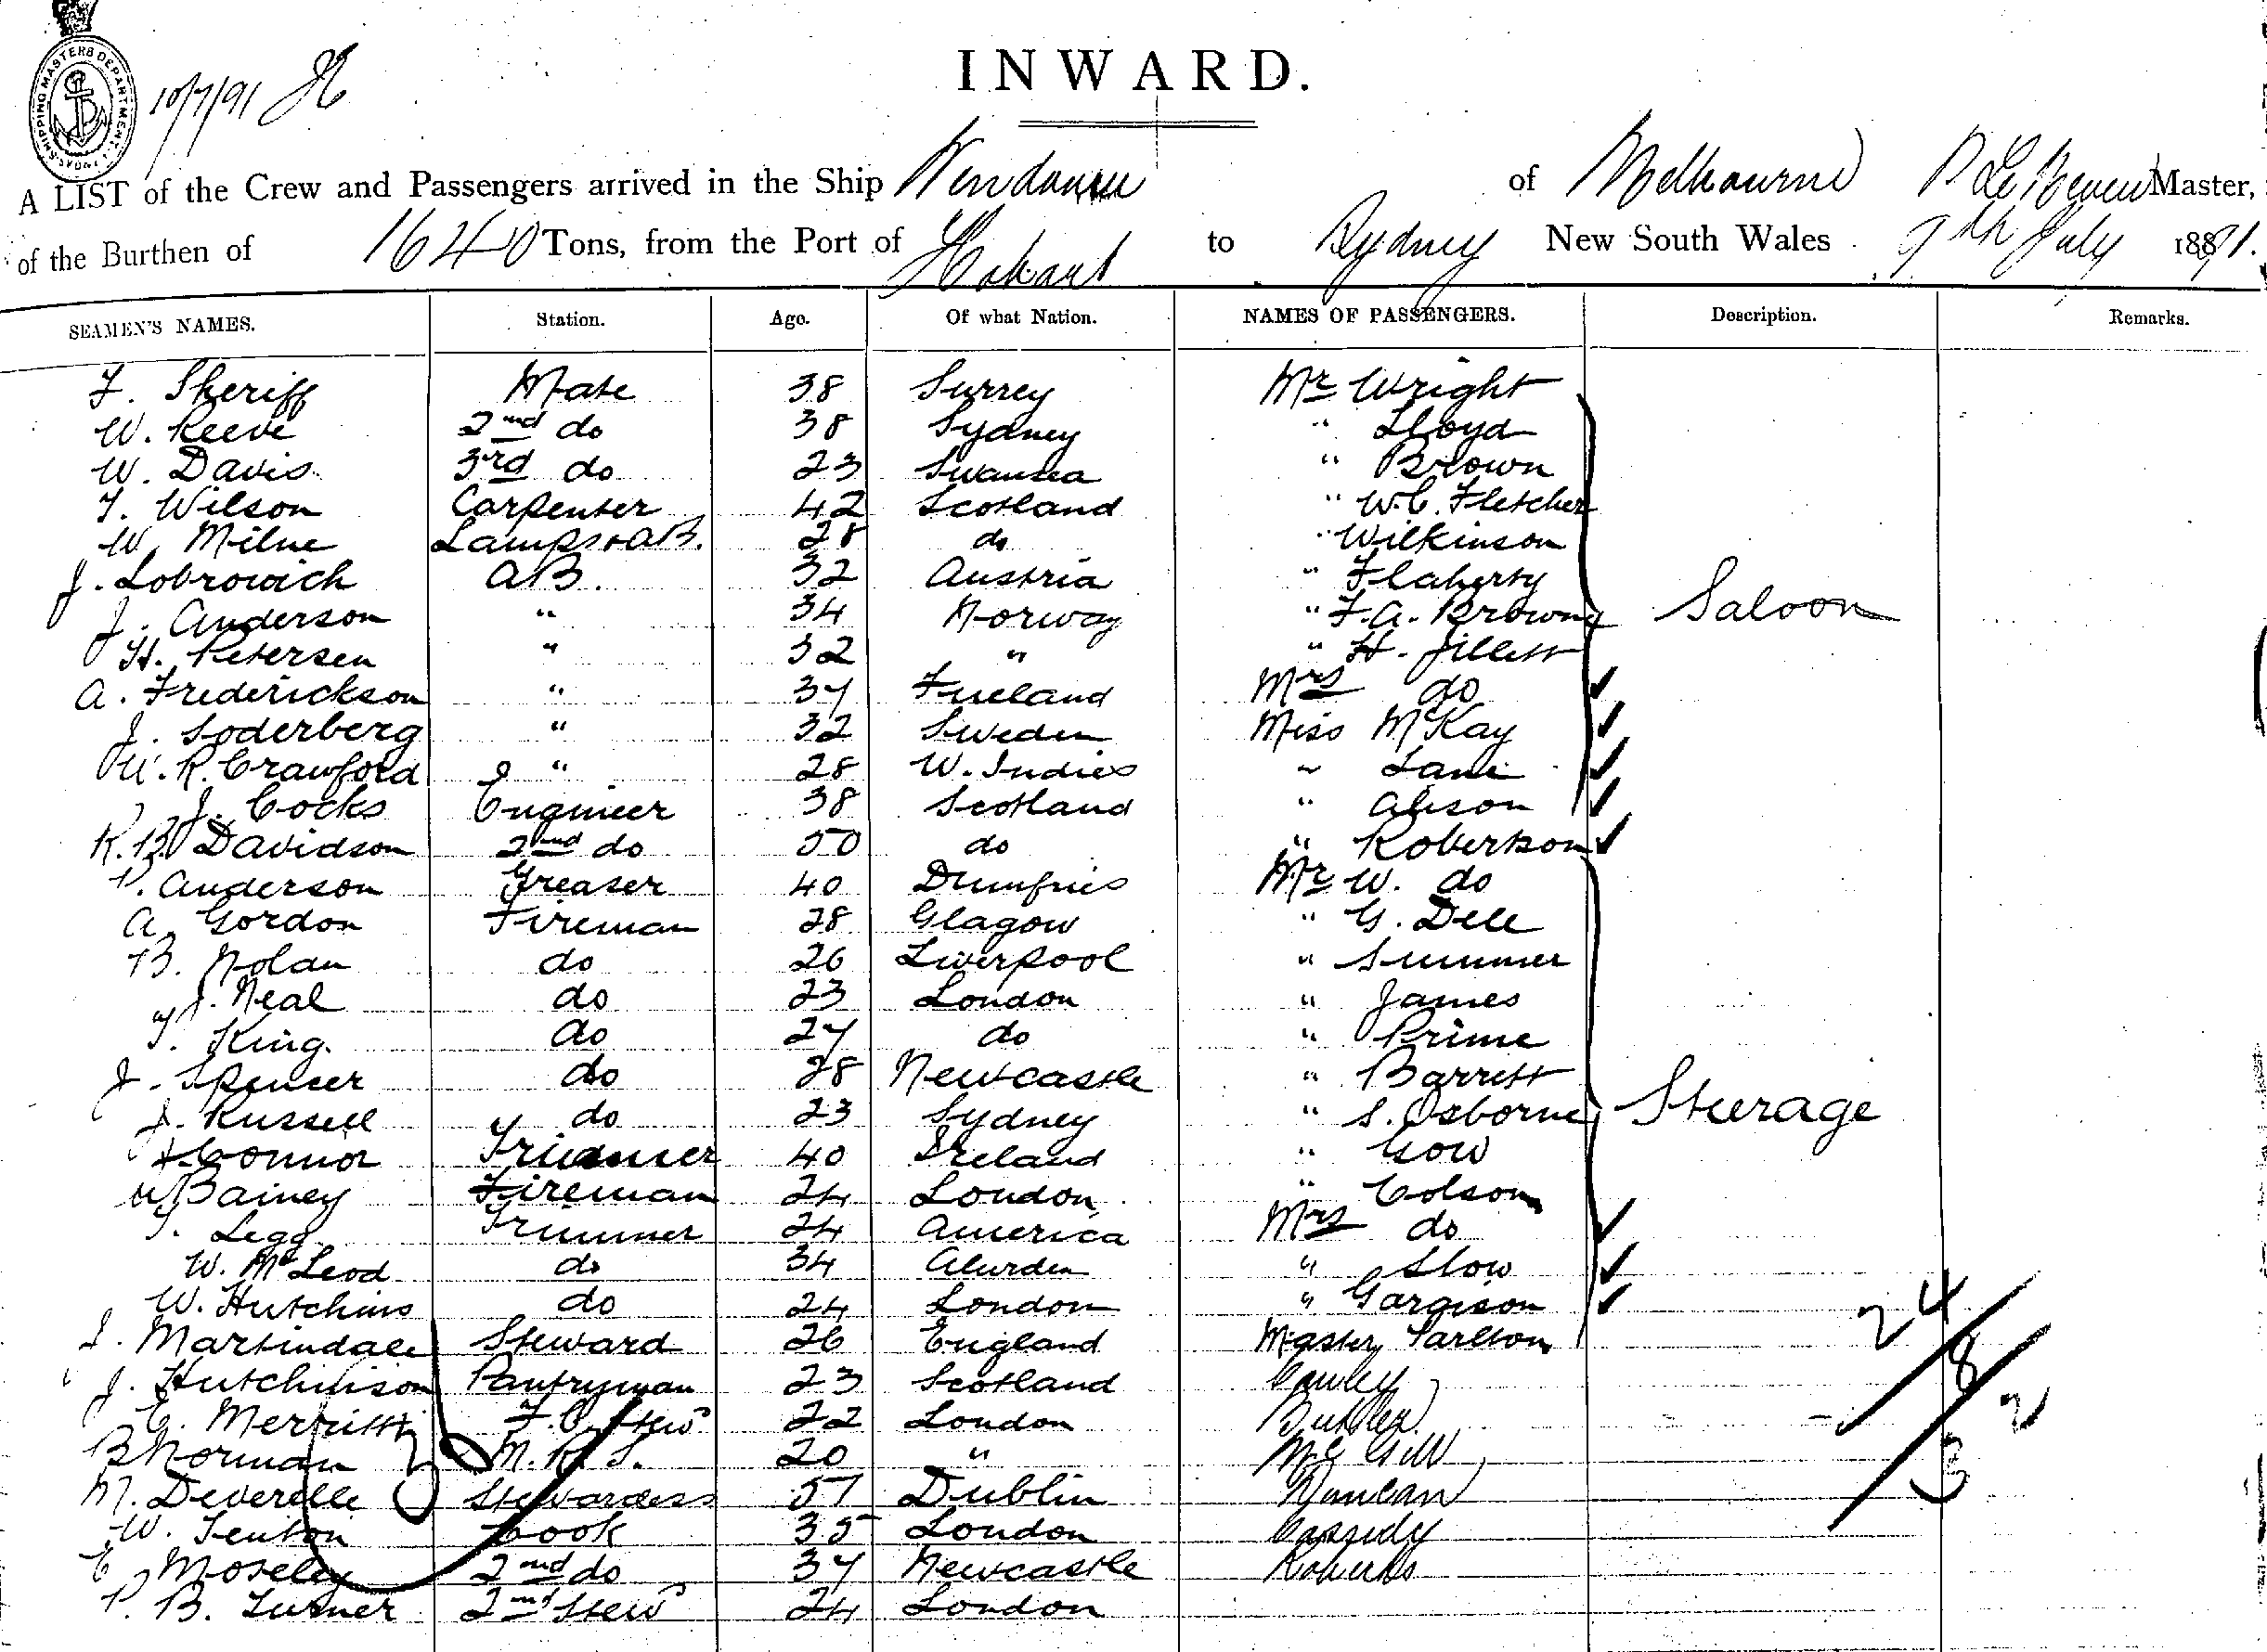 SHIPPING MASTERS DEPARTMENT
10/7/91
INWARD.
A LIST of the Crew and Passengers arrived in the Ship of Melbourne Master,
of the Burthen of 1640 Tons, from the Port of Hobart to Sydney New South Wales 9th July 1891.
SEAMEN'S NAMES. Station. Age. Of what Nation. NAMES OF PASSENGERS. Description. Remarks.
F. Sheriff Mate 38 Surrey Mr Wright
W. Reeve 2nd do 38 Sydney " Lloyd
W. Davis 3rd do 23 Swansea " Brown
T. Wilson Carpenter 42 Scotland " W.C. Fletcher
W. Milne Lamps & AB. 28 do " Wilkinson
J. Lobrowich AB. 32 Austria " Flaherty
J. Anderson " 34 Norway " F.A. Browne Saloon
H. Petersen " 32 " " H. Jillett
A. Frederickson " 37 Mrs do
J. Soderberg " 32 Sweden Miss McKay
W. R. Crawford " 28 W. Indies " Lane
J. Cocks Engineer 38 Scotland " Alison
R. B. Davidson 2nd do 50 do " Robertson
P. Anderson Greaser 40 Dumfries Mr W. do
A. Gordon Fireman 28 Glagow " G. Dele
B. Nolan do 26 Liverpool " Summer
J. Neal do 23 London " James
T. King. do 27 do " Prime
J. Spenser do 28 Newcastle " Barrett
J. Russell do 23 Sydney " S. Osborne Steerage
Connor Trimmer 40 Ireland " Gow
W Bainey Fireman 24 London " Colson
T. Legg Trimmer 24 America Mrs do
W. McLeod do 34 Aberdeen " Slow
W. Hutchins do 24 London " Gargison 24
J. Martindale Steward 26 England Master Carlton
J. Hutchinson Pantryman 23 Scotland Cowley 8
C. Merritt F.C. Stew 22 London Butler 2
B Norman M.R.S. 20 " McGill
M. Deverelle Stewardess 57 Dublin Duncan
W. Fenton Cook 35 London Cassidy
E Moseley 2nd do 37 Newcastle Roberts
P. B. Turner 2nd Stew 24 London